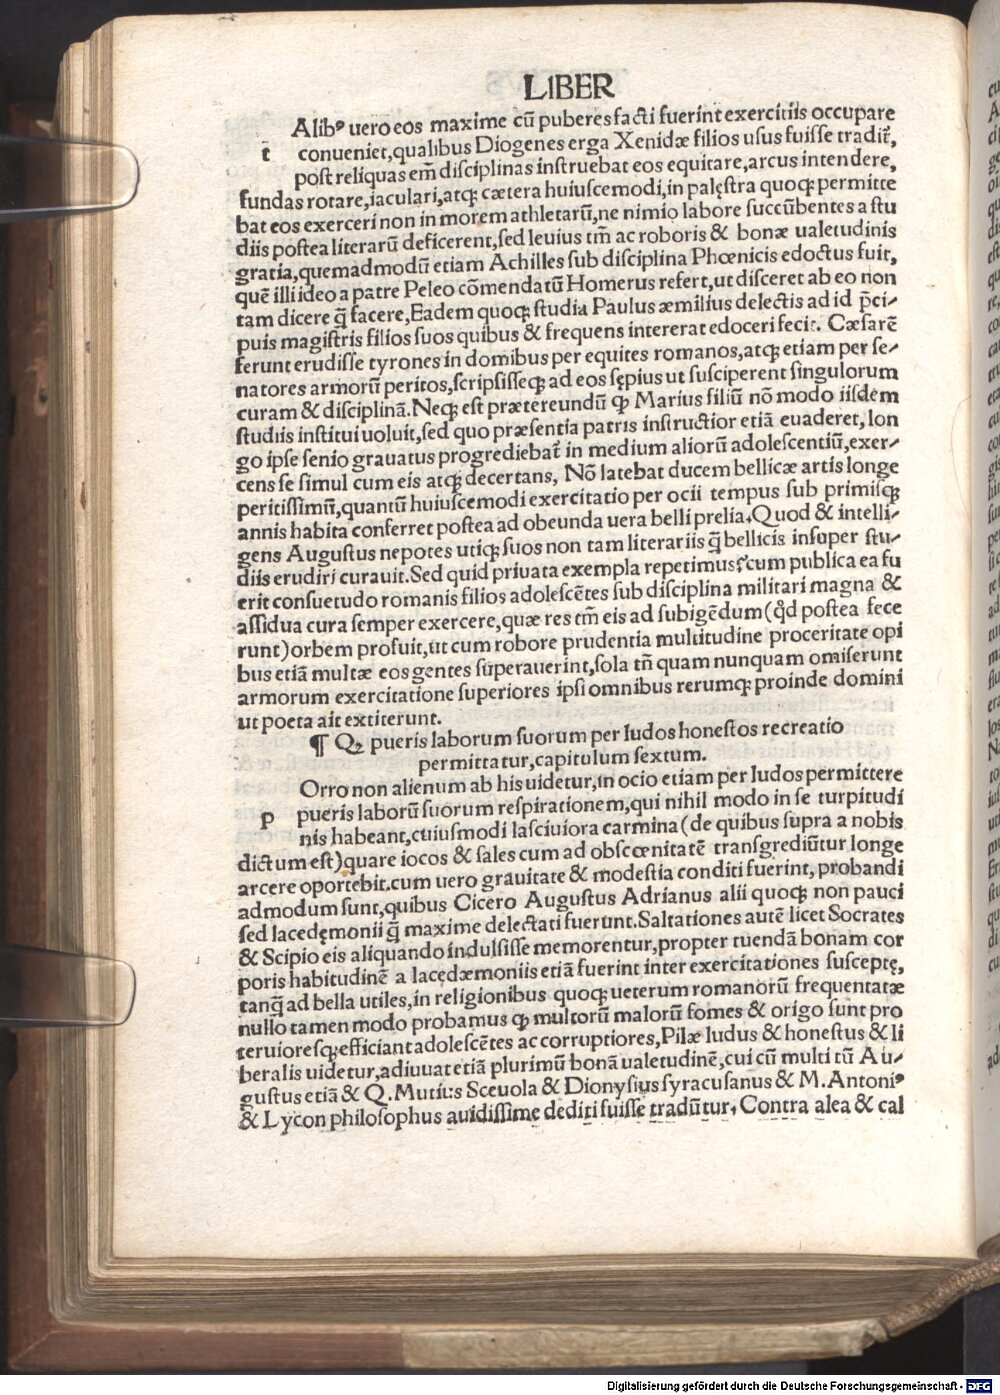 LIBER
Alibꝰ uero eos maxime cū puberes facti fuerint exercitiis occupare
t conueniet,qualibus Diogenes erga Xenidæ filios usus fuisse tradit᷑,
post reliquas em̄ disciplinas instruebat eos equitare,arcus intendere,
fundas rotare,iaculari,atqꝫ cætera huiuscemodi,in palęstra quoqꝫ permitte
bat eos exerceri non in morem athletarū,ne nimio labore succūbentes a stu
diis postea literarū deficerent,sed leuius tm̄ ac roboris & bonæ ualetudinis
gratia,quemadmodū etiam Achilles sub disciplina Phœnicis edoctus fuit,
quē illi ideo a patre Peleo cōmendatū Homerus refert,ut disceret ab eo non
tam dicere q̄ facere,Eadem quoqꝫ studia Paulus æmilius delectis ad id p̄ci-
puis magistris filios suos quibus & frequens intererat edoceri fecit. Cæsarē
ferunt erudisse tyrones in domibus per equites romanos,atqꝫ etiam per se-
natores armorū peritos,scripsisseqꝫ ad eos sępius ut susciperent singulorum
curam & disciplinā.Neqꝫ est prætereundū ꝙ Marius filiū nō modo iisdem
studiis institui uoluit,sed quo præsentia patris instructior etiā euaderet,lon
go ipse senio grauatus progrediebat᷑ in medium aliorū adolescentiū,exer-
cens se simul cum eis atqꝫ decertans, Nō latebat ducem bellicæ artis longe
peritissimū,quantū huiuscemodi exercitatio per ocii tempus sub primisqꝫ
annis habita conferret postea ad obeunda uera belli prelia.Quod & intelli-
gens Augustus nepotes utiqꝫ suos non tam literariis q̄ bellicis insuper stu-
diis erudiri curauit.Sed quid priuata exempla repetimus?cum publica ea fu
erit consuetudo romanis filios adolescētes sub disciplina militari magna &
assidua cura semper exercere,quæ res tm̄ eis ad subigēdum(qd̓ postea fece
runt)orbem profuit,ut cum robore prudentia multitudine proceritate opi
bus etiā multæ eos gentes superauerint,sola tn̄ quam nunquam omiserunt
armorum exercitatione superiores ipsi omnibus rerumqꝫ proinde domini
ut poeta ait extiterunt.
¶ Qꝫ pueris laborum suorum per ludos honestos recreatio
permittatur,capitulum sextum.
Orro non alienum ab his uidetur,in ocio etiam per ludos permittere
p pueris laborū suorum respirationem,qui nihil modo in se turpitudi
nis habeant,cuiusmodi lasciuiora carmina(de quibus supra a nobis
dictum est)quare iocos & sales cum ad obscœnitatē transgrediūtur longe
arcere oportebit.cum uero grauitate & modestia conditi fuerint, probandi
admodum sunt,quibus Cicero Augustus Adrianus alii quoqꝫ non pauci
sed lacedęmonii q̄ maxime delectati fuerunt.Saltationes autē licet Socrates
& Scipio eis aliquando indulsisse memorentur,propter tuendā bonam cor
poris habitudinē a lacędæmoniis etiā fuerint inter exercitationes susceptę,
tanq̄ ad bella utiles,in religionibus quoqꝫ ueterum romanorū frequentatæ
nullo tamen modo probamus ꝙ multorū malorū fomes & origo sunt pro
teruioresqꝫ efficiant adolescētes ac corruptiores,Pilæ ludus & honestus & li
beralis uidetur,adiuuat etiā plurimū bonā ualetudinē,cui cū multi tū Au-
gustus etiā & Q.Mutius Sceuola & Dionysius syracusanus & M.Antoniꝰ
& Lycon philosophus auidissime dediti fuisse tradūtur, Contra alea & cal
Digitalisierung gefördert durch die Deutsche Forschungsgemeinschaft - DFG